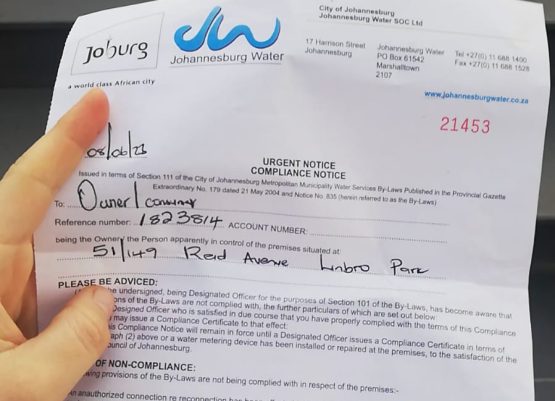 City of Johannesburg
Johannesburg Water SOC Ltd
Joburg
a world class African city
Johannesburg Water
17 Harrison Street
Johannesburg
Johannesburg Water
PO Box 61542
Marshalltown
2107
Tel +27(0) 11 688 1400
Fax +27(0) 11 688 1528
www.johannesburgwater.co.za
21453
08/06/23
URGENT NOTICE
COMPLIANCE NOTICE
Issued in terms of Section 111 of the City of Johannesburg Metropolitan Municipality Water Services By-Laws Published in the Provincial Gazette
Extraordinary No. 179 dated 21 May 2004 and Notice No. 835 (herein referred to as the By-Laws)
To: Owner/consumer
Reference number: 1823814 ACCOUNT NUMBER:
being the Owner/ the Person apparently in control of the premises situated at:
51/149 Reid Avenue Linbro Park
PLEASE BE ADVICED:
the undersigned, being Designated Officer for the purposes of Section 101 of the By-Laws, has become aware that
ons of the By-Laws are not complied with, the further particulars of which are set out below:
Designed Officer who is satisfied in due course that you have properly complied with the terms of this Compliance
may issue a Compliance Certificate to that effect:
is Compliance Notice will remain in force until a Designated Officer issues a Compliance Certificate in terms of
aph (2) above or a water metering device has been installed or repaired at the premises, to the satisfaction of the
ouncil of Johannesburg.
OF NON-COMPLIANCE:
wing provisions of the By-Laws are not being complied with in respect of the premises:-
An unauthorized connection re reconnection has